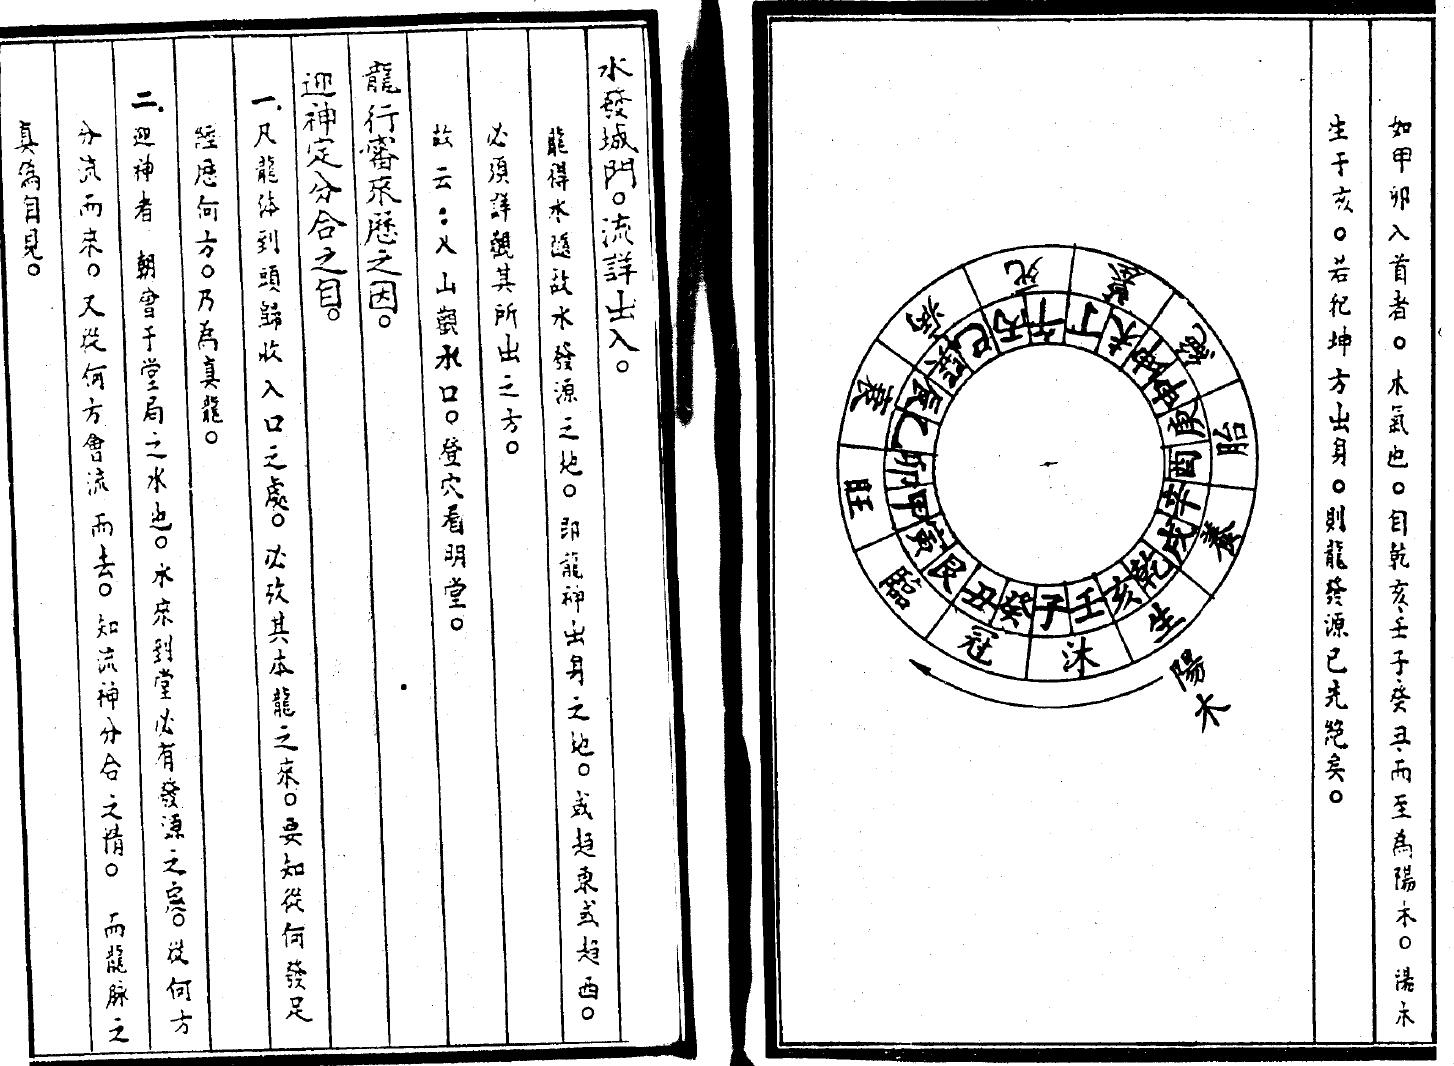 如甲卯入首者。木氣也。自乾亥壬子癸丑而至為陽木。陽木
生于亥。若祀坤方出身。則龍發源已先絕矣。
死
葬
絕
胎
養
生
沐
冠
臨
旺
衰
病
午
丁
未
坤
申
庚
酉
辛
戌
乾
亥
壬
子
癸
丑
艮
寅
甲
卯
乙
辰
巽
巳
丙
陽木
水發城門。流詳出入。
龍得水隨故水發源之地。即龍神出身之地。或趋東或趋西。
必須詳觀其所出之方。
故云：入山觀水口。登穴看明堂。
龍行審來歷之因。
迎神定分合之自。
一.凡龍㳺到頭歸收入口之處。必攷其本龍之來。要知從何發足
經歷何方。乃為真龍。
二.迎神者 朝會于堂局之水也。水來到堂必有發源之處。從何方
分流而來。又從何方會流而去。知流神分合之情。 而龍脉之
真偽自見。